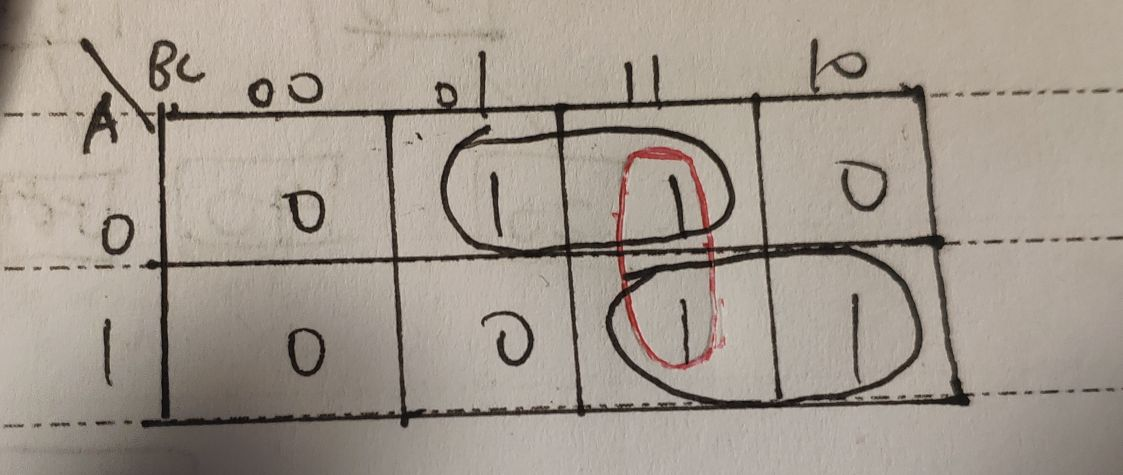 BC 00 01 11 10
A
0 0 1 1 0
1 0 0 1 1